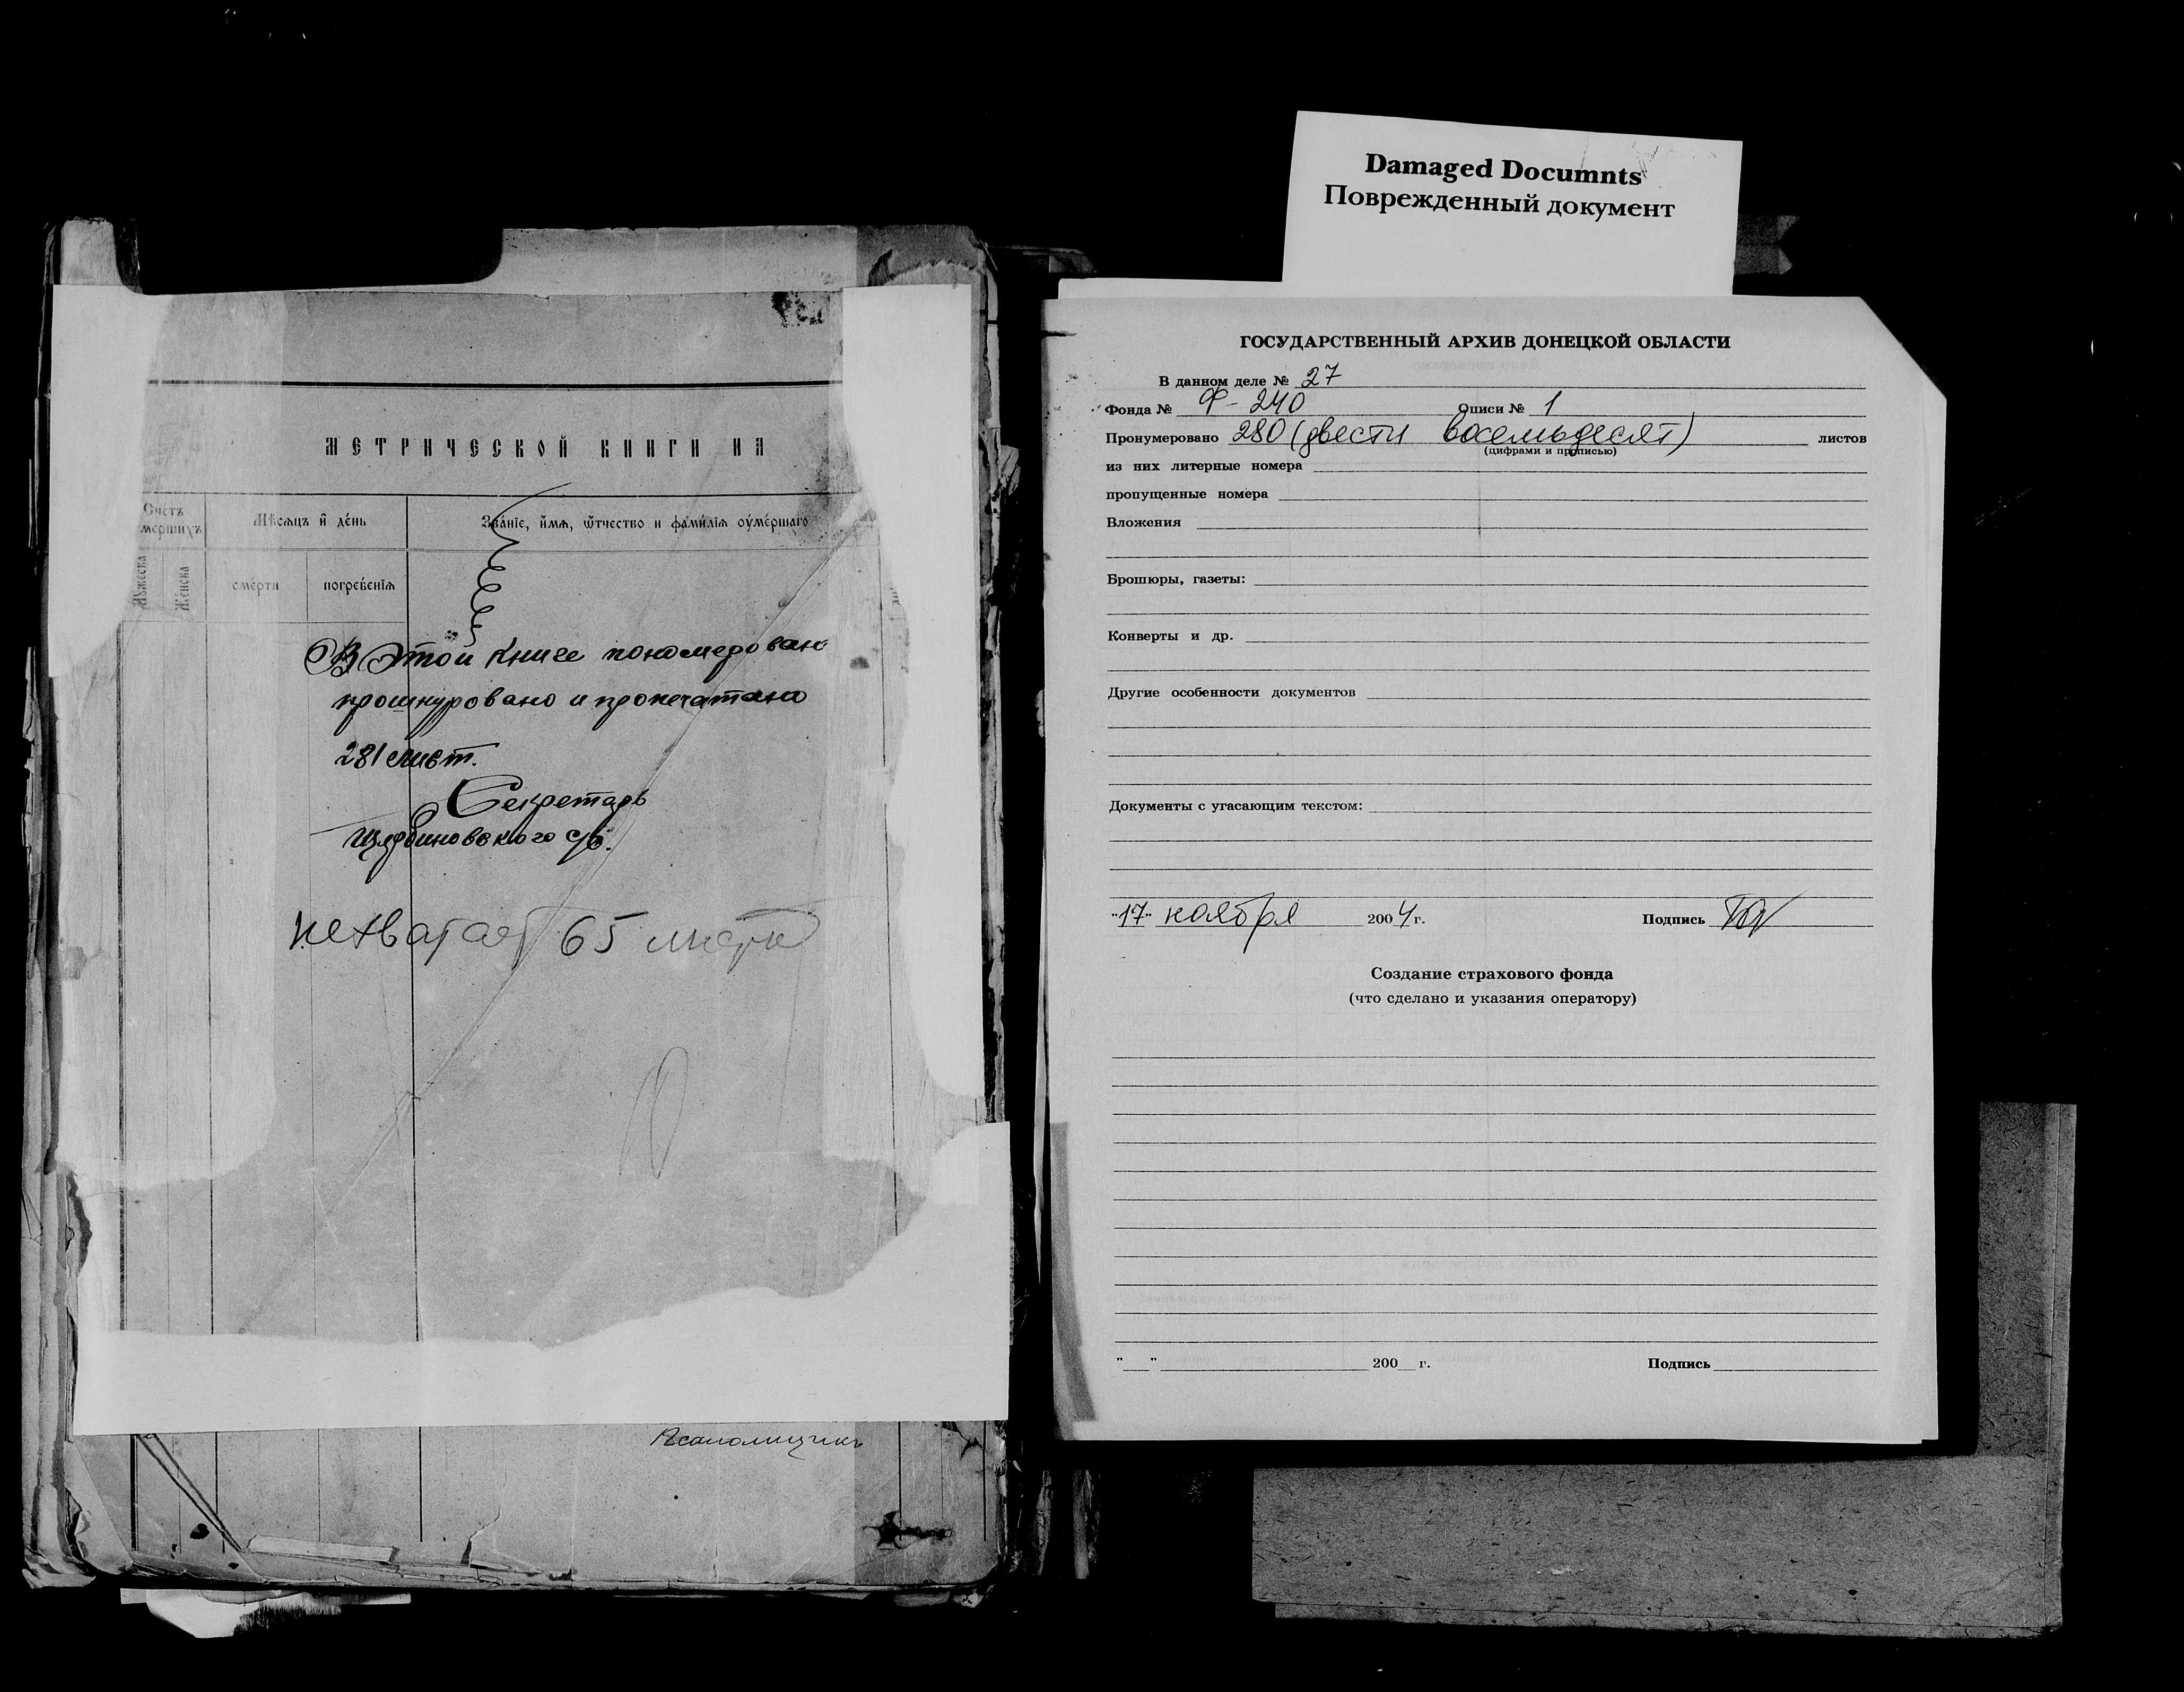 МЕТРИЧЕСКОЙ КНИГИ НА
Сче́тъ
мершихъ
Мѣсѧцъ и҆ де́нь
Зва́нїе, и҆́мѧ, ѻ҆́тчество и фами́лїѧ оу҆ме́ршаго
Мꙋ́жеска
Же́нска
сме́рти
погребе́нїѧ
В этой книге пономерован
прошнуровано и пропечатано
281 лист.
Секретарь
Щербиновского с/с.
нехватает 65 листа
Damaged Documnts
Поврежденный документ
ГОСУДАРСТВЕННЫЙ АРХИВ ДОНЕЦКОЙ ОБЛАСТИ
В данном деле № 27
Фонда № Ф-240 Описи № 1
Пронумеровано 280 (двести восемьдесят) листов
(цифрами и прописью)
из них литерные номера
пропущенные номера
Вложения
Брошюры, газеты:
Конверты и др.
Другие особенности документов
Документы с угасающим текстом:
"17" ноября 2004 г. Подпись
Создание страхового фонда
(что сделано и указания оператору)
"__" 200__ г. Подпись